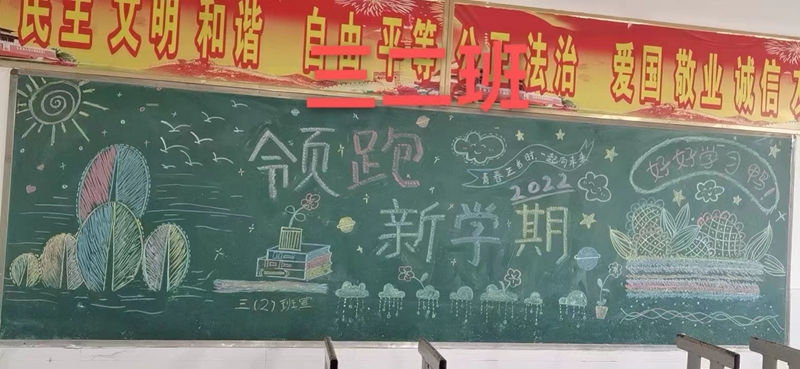 民主 文明 和谐 自由 平等 公正 法治 爱国 敬业 诚信
三二班
领跑
新学期
2022
青春正当时,一起向未来
好好学习鸭!
三(2)班宣